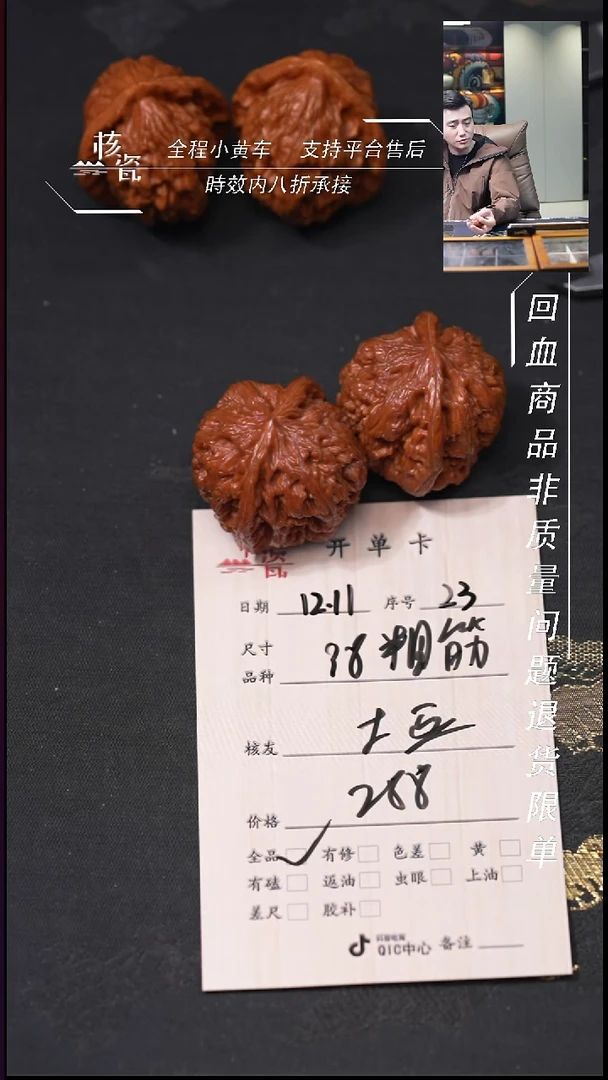 核瓷
全程小黄车 支持平台售后
時效内八折承接
回血商品非质量问题退货限单
开单卡
日期 12.11 序号 23
尺寸
品种 38粗筋
核友
价格 268
全品 ✓ 有修 色差 黄
有磕 返油 虫眼 上油
差尺 胶补
QIC中心 备注